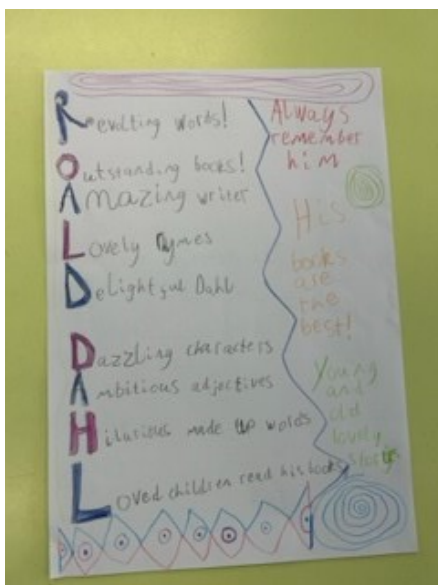 Revolting words!
Outstanding books!
Amazing writer
Lovely Rymes
Delightful Dahl
Dazzling characters
Ambitious adjectives
Hilarioles made up words
Loved children read his books
Always
remember
him
His
books
are
the
best!
Young
and
old
lovely
storys